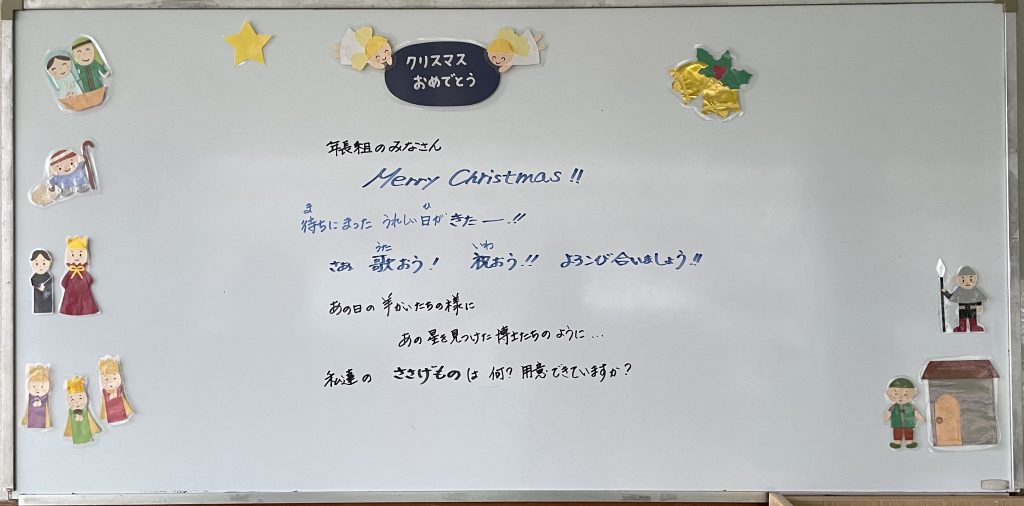 クリスマス
おめでとう
年長組のみなさん
Merry Christmas!!
待ちにまった うれしい日がきたー!!
さぁ 歌おう! 祝おう!! よろこび合いましょう!!
あの日の羊かいたちの様に
あの星を見つけた博士たちのように...
私達の ささげものは 何? 用意できていますか?